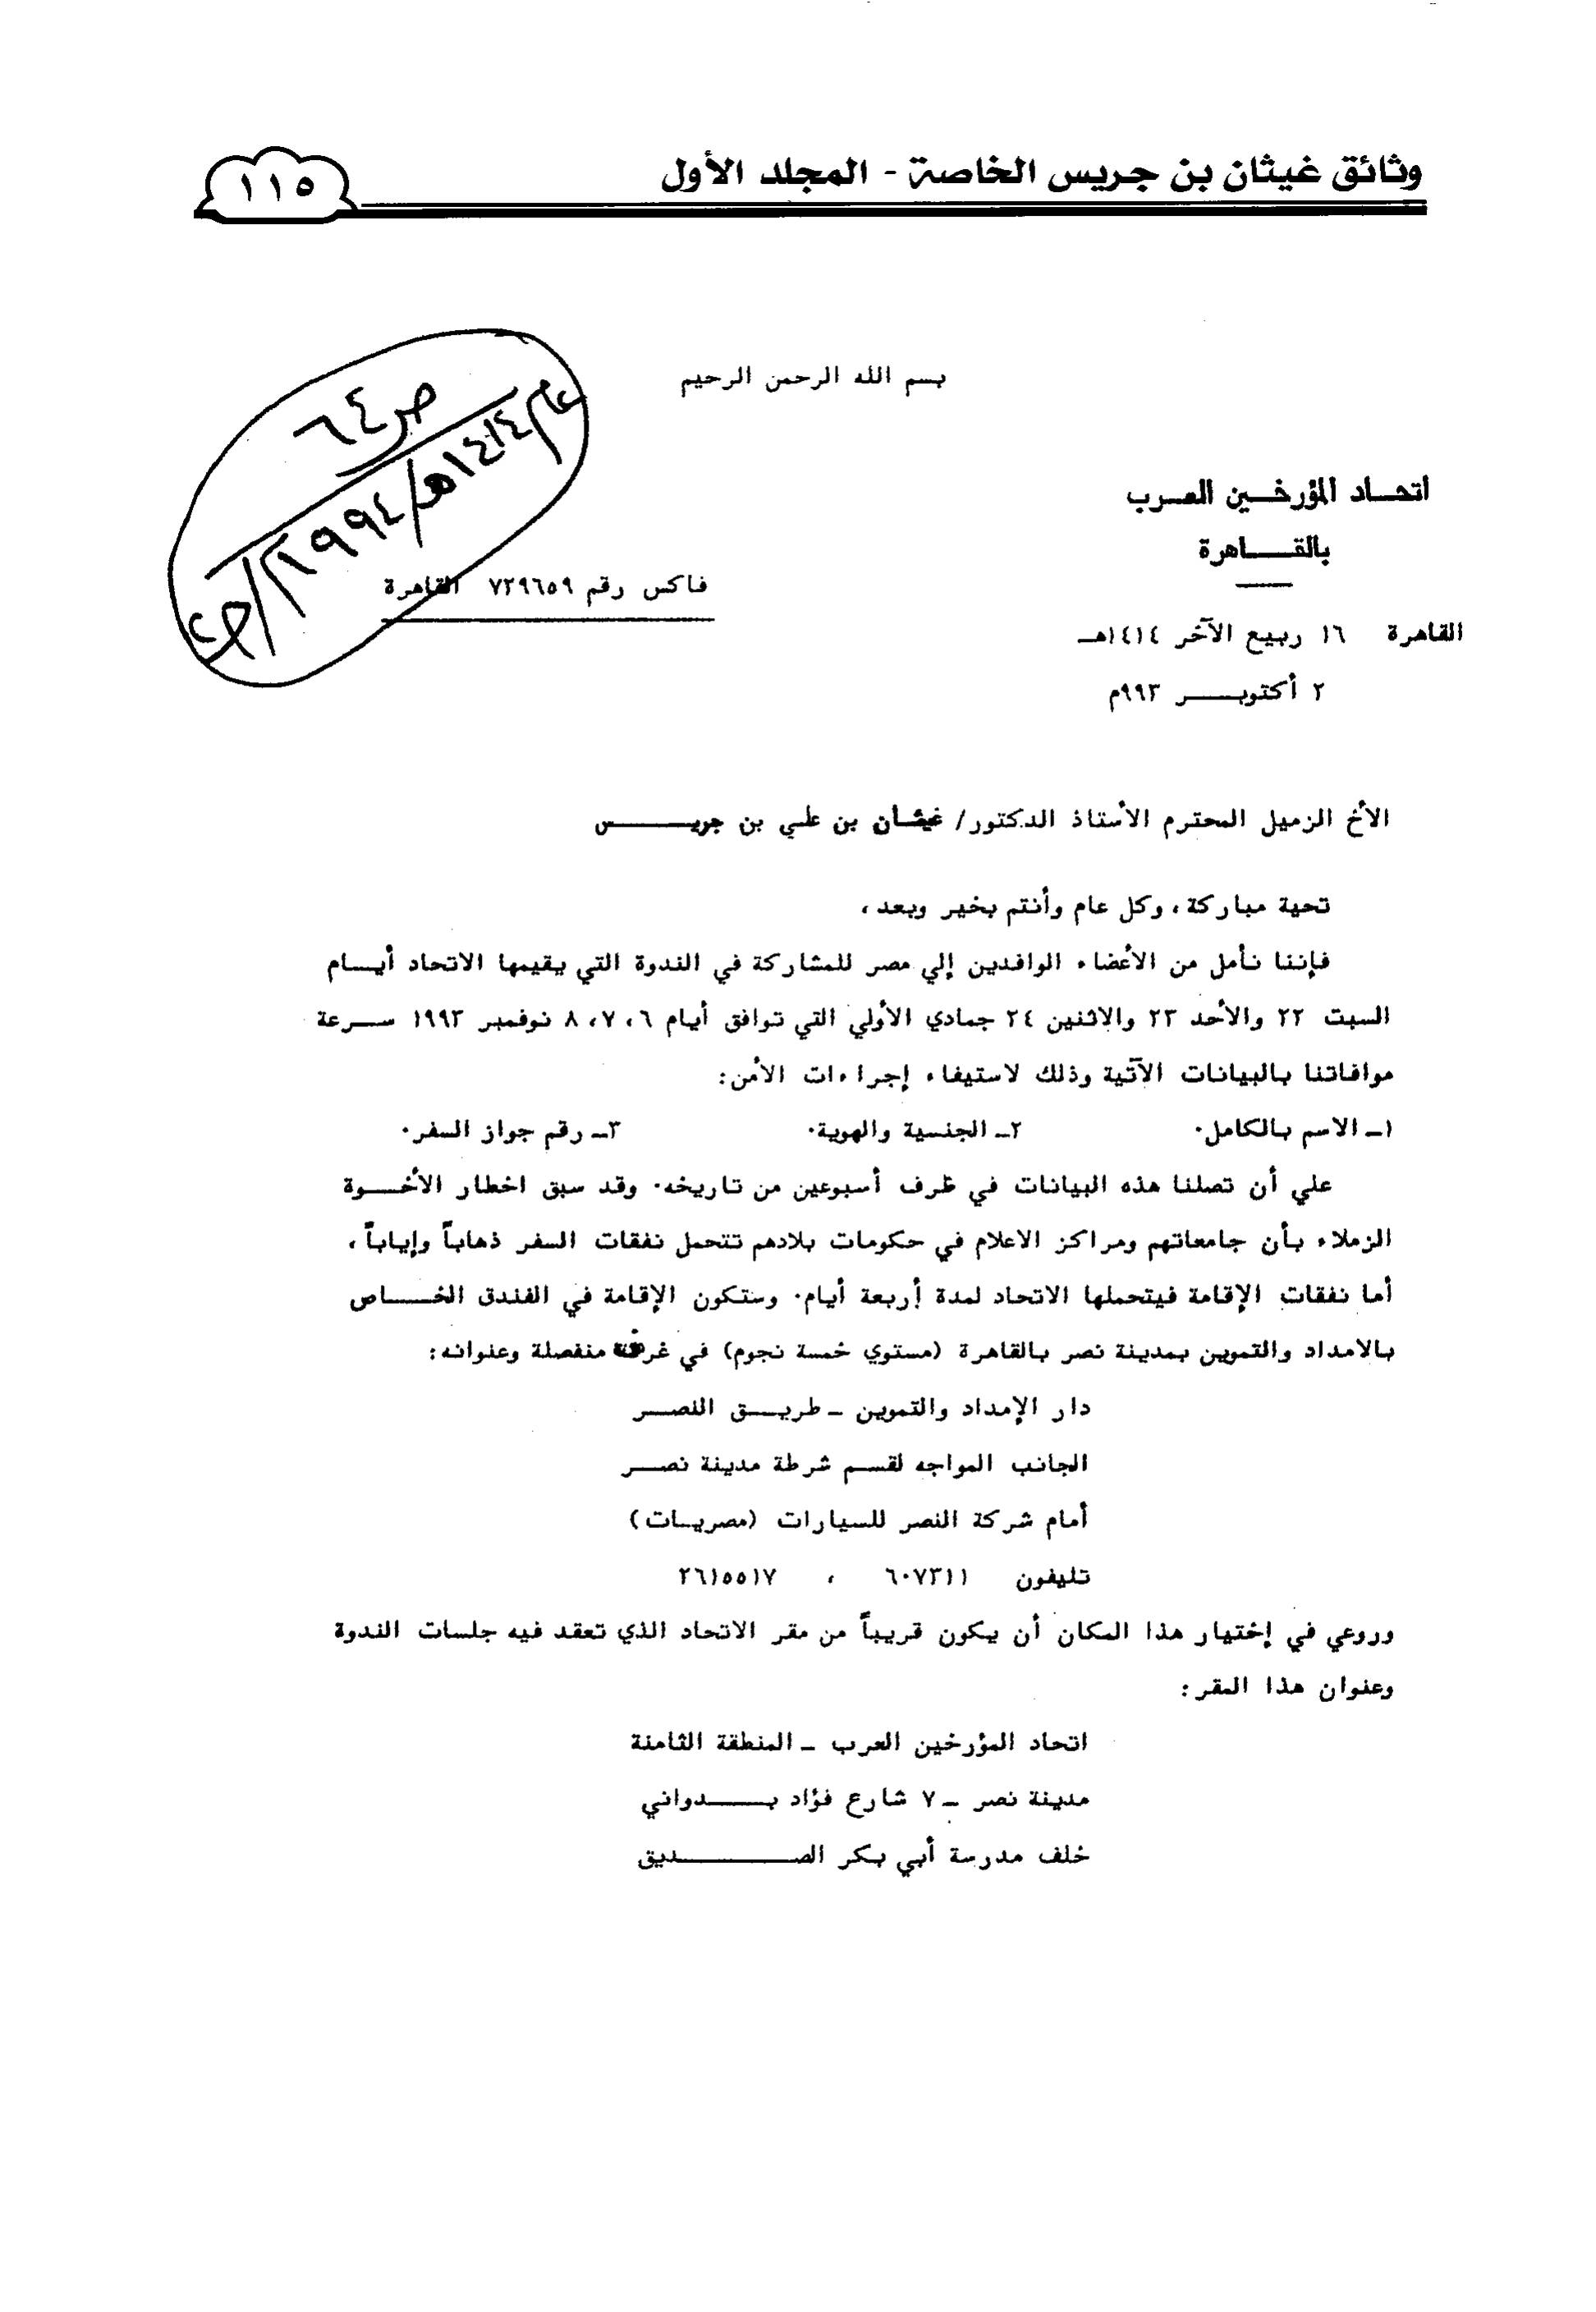 وثائق غيثان بن جريس الخاصة - المجلد الأول
١١٥
بسم الله الرحمن الرحيم
ص ٦٤
عام ١٤١٤هـ/١٩٩٤م/
اتحـــاد المؤرخــين العــرب
بالقـــــاهرة
فاكس رقم ٧٢٩٦٥٩ القاهرة
القاهرة ١٦ ربيع الآخر ١٤١٤هـ
٢ أكتوبـــــر ٩٩٣م
الأخ الزميل المحترم الأستاذ الدكتور/ غيثــان بن علــي بن جريـــــــس
تحية مباركة، وكل عام وأنتم بخير وبعد،
فإننا نأمل من الأعضاء الوافدين إلي مصر للمشاركة في الندوة التي يقيمها الاتحاد أيـــام
السبت ٢٢ والأحد ٢٣ والاثنين ٢٤ جمادي الأولي التي توافق أيام ٦، ٧، ٨ نوفمبر ١٩٩٣ ســـرعة
موافاتنا بالبيانات الآتية وذلك لاستيفاء إجراءات الأمن:
١ـ الاسم بالكامل. ٢ـ الجنسية والهوية. ٣ـ رقم جواز السفر.
علي أن تصلنا هذه البيانات في ظرف أسبوعين من تاريخه. وقد سبق اخطار الأخـــوة
الزملاء بأن جامعاتهم ومراكز الاعلام في حكومات بلادهم تتحمل نفقات السفر ذهاباً وإياباً،
أما نفقات الإقامة فيتحملها الاتحاد لمدة أربعة أيام. وستكون الإقامة في الفندق الخـــــاص
بالامداد والتموين بمدينة نصر بالقاهرة (مستوي خمسة نجوم) في غرفة منفصلة وعنوانه:
دار الإمداد والتموين ـ طريـــق النصـــر
الجانب المواجه لقسم شرطة مدينة نصـــر
أمام شركة النصر للسيارات (مصريــات)
تليفون ٦٠٧٣١١ ، ٢٦١٥٥١٧
وروعي في إختيار هذا المكان أن يكون قريباً من مقر الاتحاد الذي تعقد فيه جلسات الندوة
وعنوان هذا المقر:
اتحاد المؤرخين العرب ـ المنطقة الثامنة
مدينة نصر ـ ٧ شارع فؤاد بـــــدواني
خلف مدرسة أبي بكر الصـــــــــديق